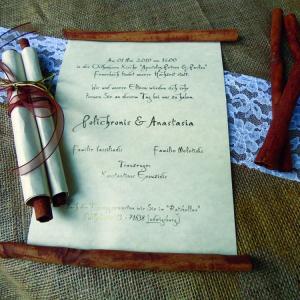 Am 01 Mai 2010 um 1600
in der Orthodoxen Kirche "Apostolos Petros & Pavlos"
Feuerbach findet unsere Hochzeit statt.
Wir und unsere Eltern würden sich sehr
freuen Sie an diesem Tag bei uns zu haben.
Polichronis & Anastasia
Familie
Familie
Trauzeuge
Konstantinos
wir Sie im "Ratskeller"
13 - 71638 Ludwigsburg